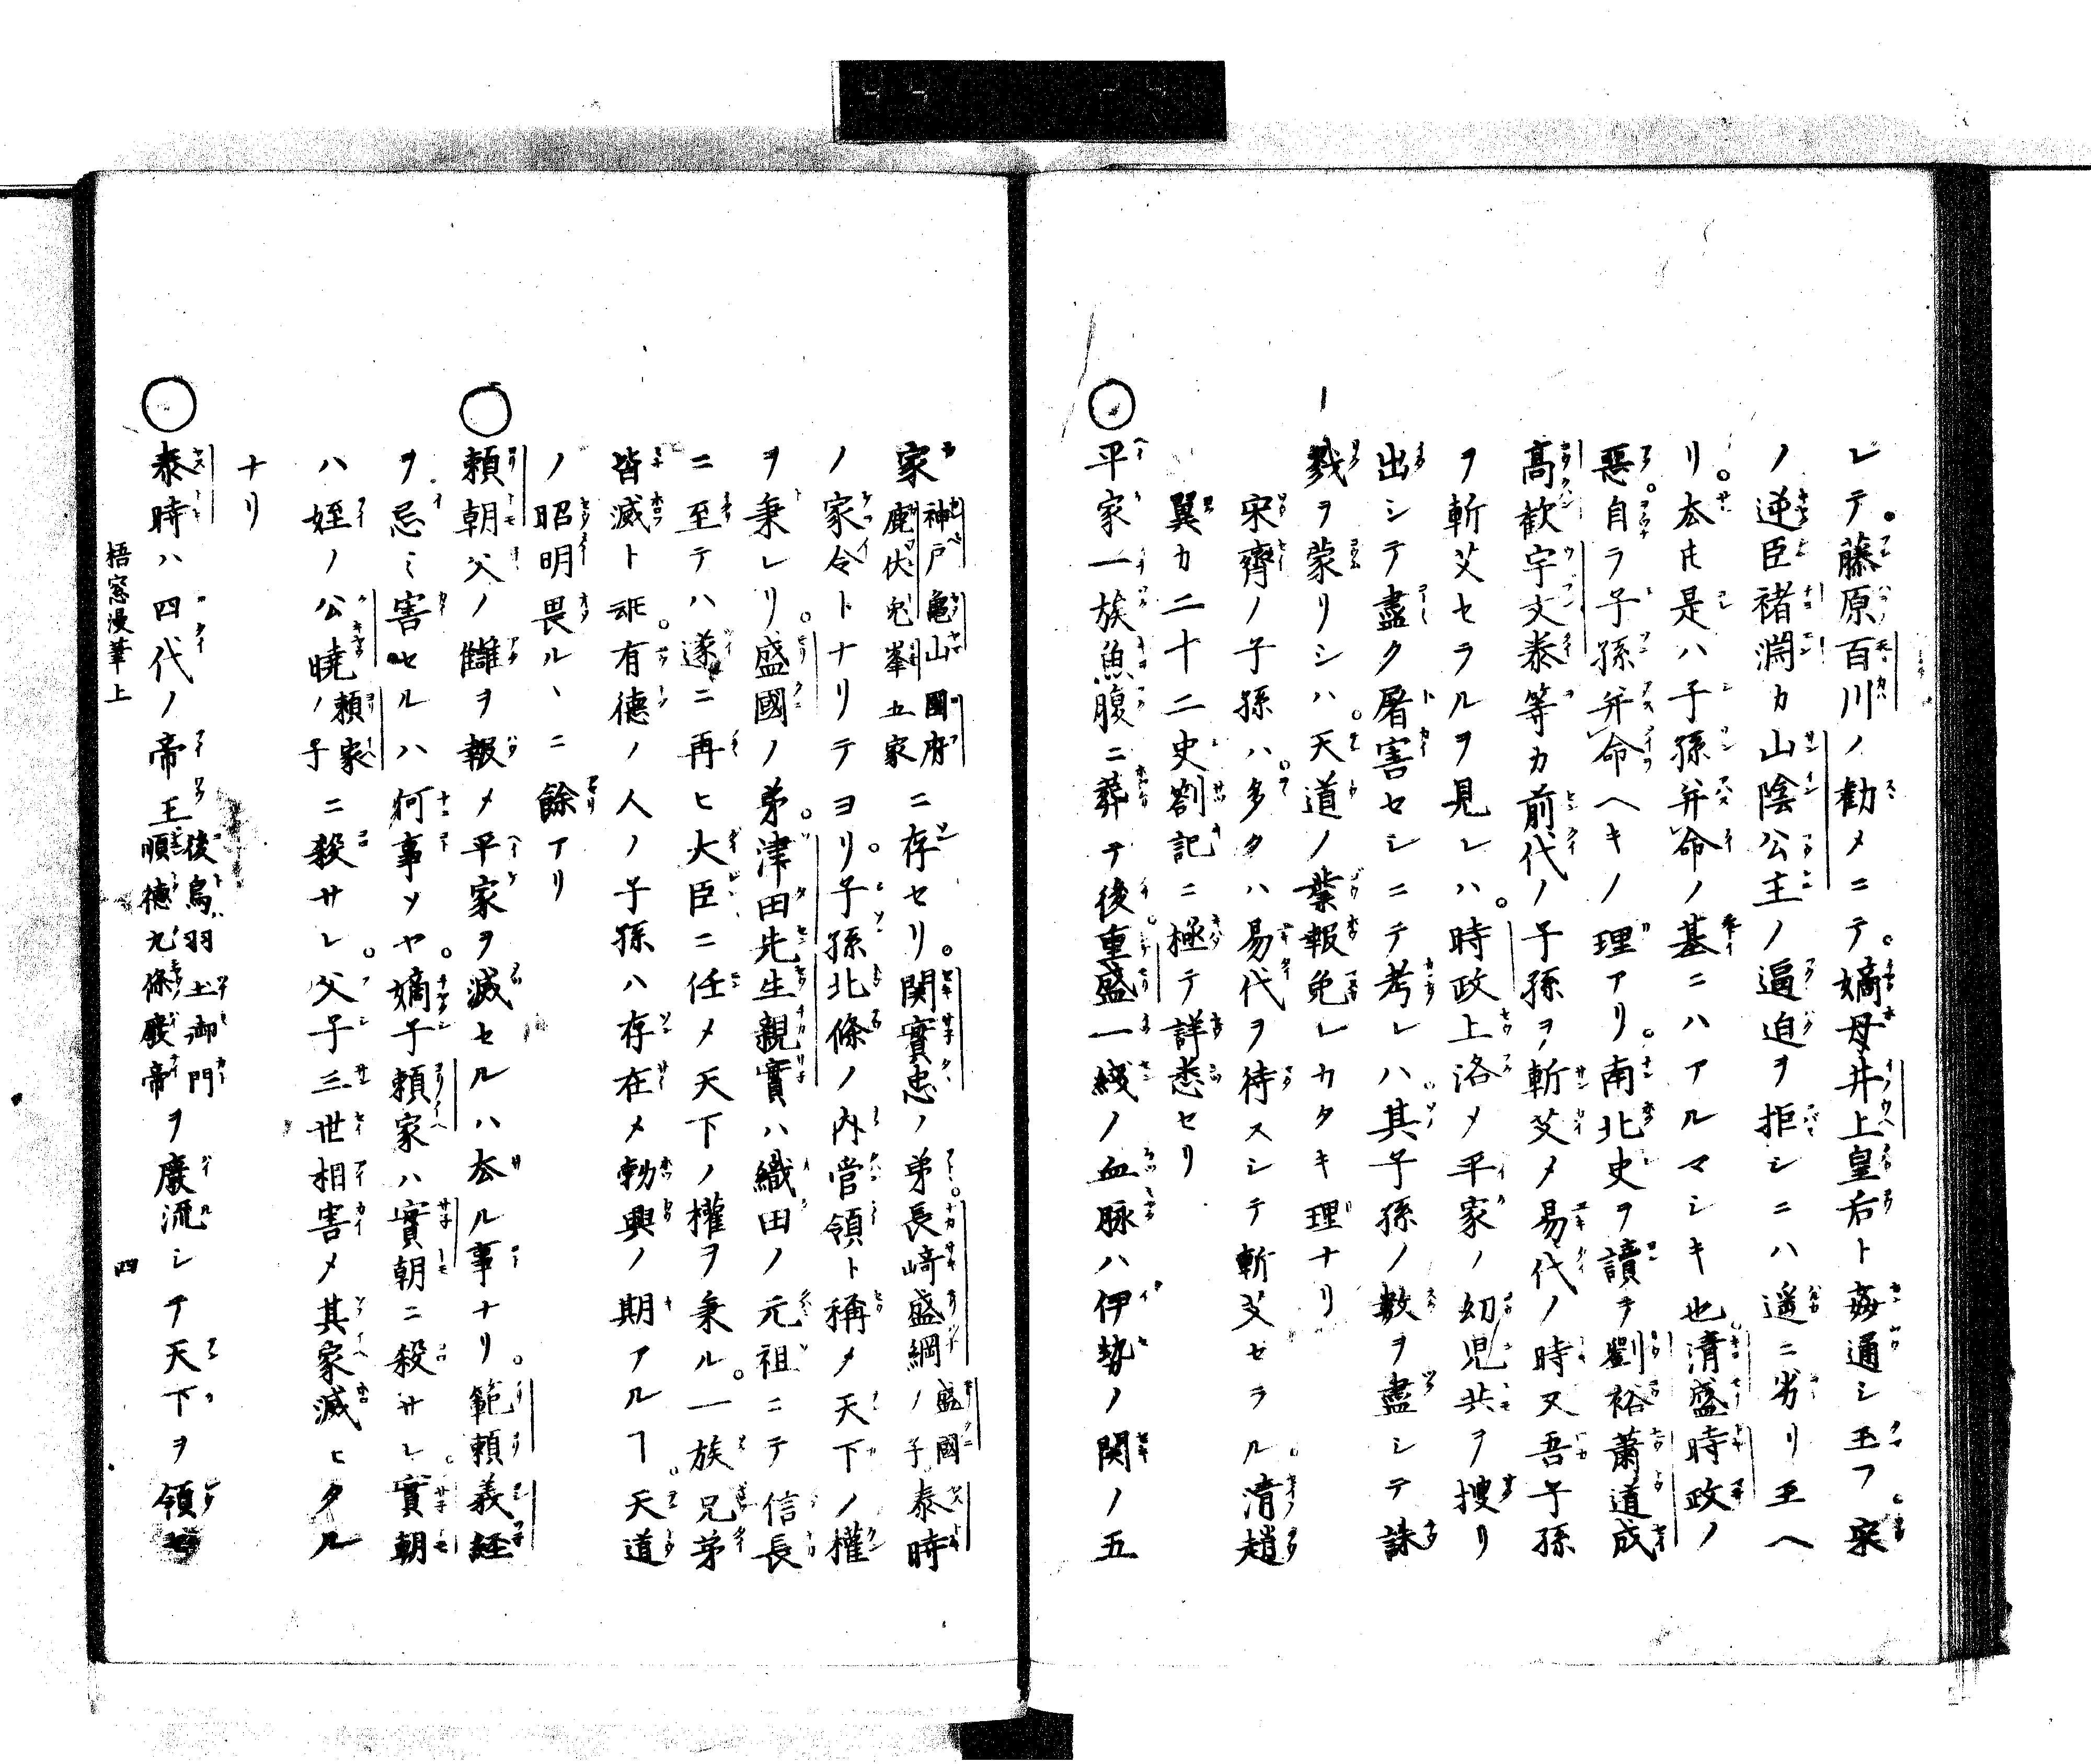 レテ。藤原百川ノ勧メニテ。嫡母井上皇后ト姦通シ玉フ。宋
ノ逆臣褚淵カ山陰公主ノ逼迫ヲ拒シニハ遥ニ劣リ玉ヘ
リ。厺𪜈是ハ子孫弁命ノ基ニハアルマシキ也。清盛時政ノ
惡。自ラ子孫弁命ヘキノ理アリ。南北史ヲ讀テ劉裕蕭道成
高歓宇文泰等カ前代ノ子孫ヲ斬艾メ易代ノ時又吾子孫
ヲ斬艾セラルヲ見レハ。時政上洛メ平家ノ幼児共ヲ搜リ
出シテ盡ク屠害セシニテ考レハ其子孫ノ數ヲ盡シテ誅
戮ヲ蒙リシハ。天道ノ業報免レカタキ理ナリ
宋齊ノ子孫ハ。多クハ易代ヲ待スシテ斬艾セラル。清趙
翼カ二十二史劄記ニ極テ詳悉セリ
○平家一族魚腹ニ葬テ後。重盛一綫ノ血脉ハ伊勢ノ関ノ五
家神戸亀山國府鹿伏兎峯五家ニ存セリ。関實忠ノ弟。長﨑盛綱ノ子盛國泰時
ノ家令トナリテヨリ。子孫北條ノ内官領ト稱メ天下ノ權
ヲ秉レリ。盛國ノ弟。津田先生親實ハ織田ノ元祖ニテ信長
ニ至テハ遂ニ再ヒ大臣ニ任メ天下ノ權ヲ秉ル。一族兄弟
皆滅ト𪜈。有德ノ人ノ子孫ハ存在メ勃興ノ期アルヿ。天道
ノ昭明畏ルヽニ餘アリ
○頼朝父ノ讎ヲ報メ平家ヲ滅セルハ厺ル事ナリ。範頼義経
ヲ忌ミ害セルハ何事ソヤ。嫡子頼家ハ實朝ニ殺サレ。實朝
ハ姪ノ公曉頼家ノ子ニ殺サレ。父子三世相害メ其家滅ヒタル
ナリ
○泰時ハ四代ノ帝王後鳥羽土御門順德九條廢帝ヲ廢流シテ天下ヲ領セ
梧窓漫筆上
四